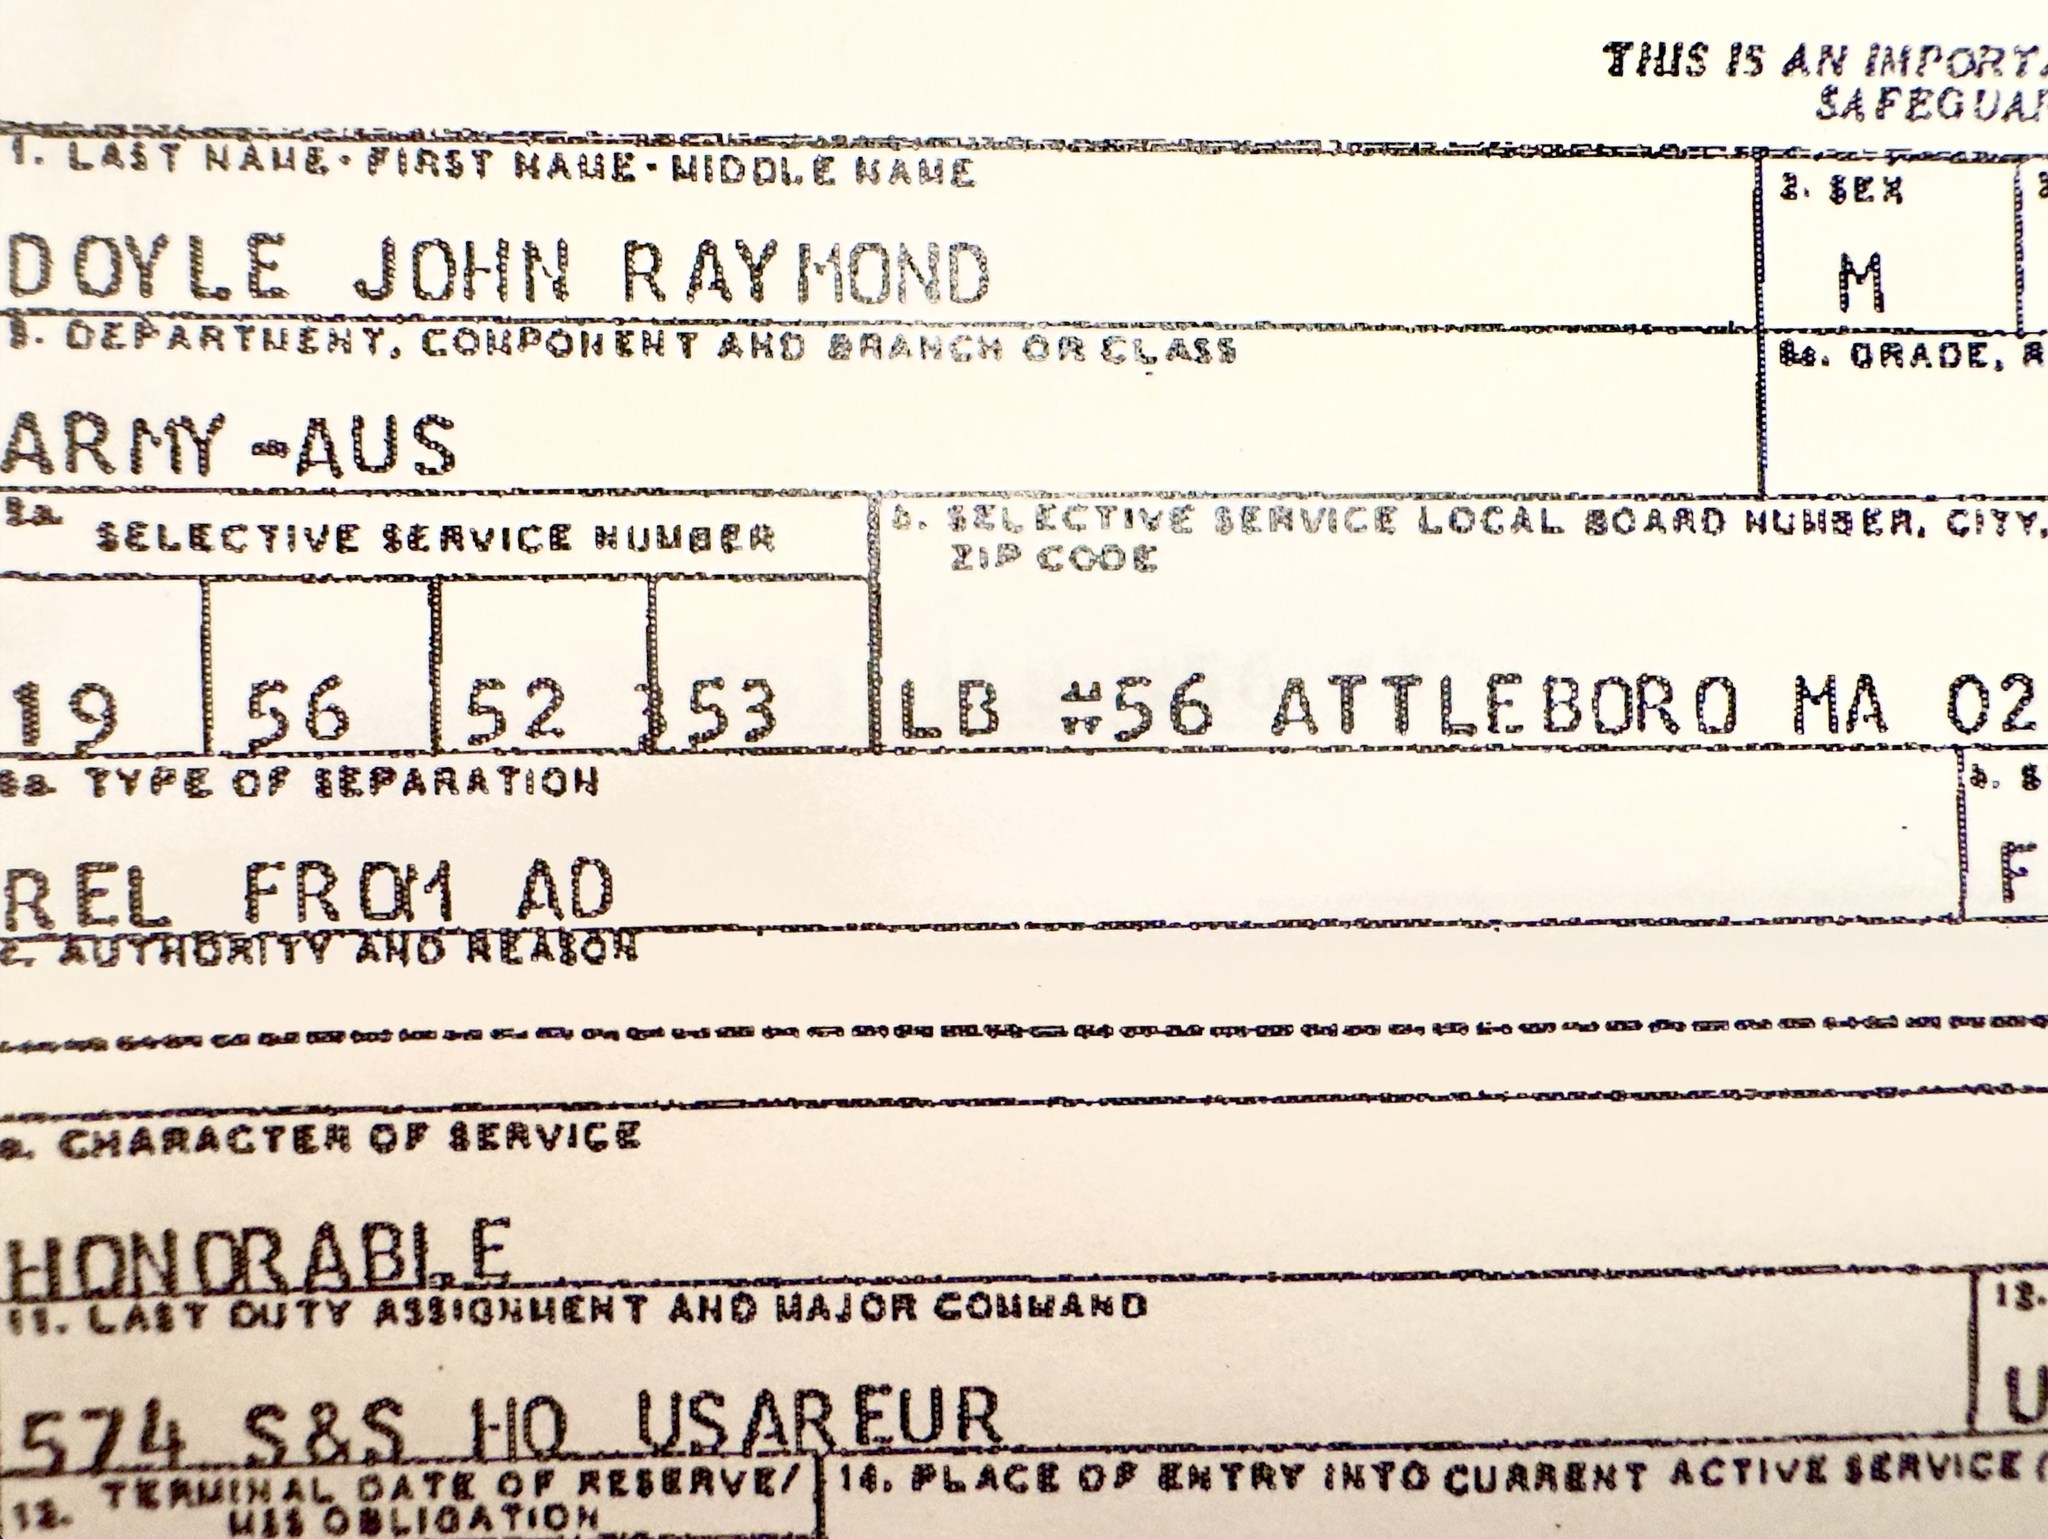 THIS IS AN IMPORTA
SAFEGUAR
1. LAST NAME - FIRST NAME - MIDDLE NAME
2. SEX
DOYLE JOHN RAYMOND
M
DEPARTMENT, COMPONENT AND BRANCH OR CLASS
GRADE, R
ARMY-AUS
SELECTIVE SERVICE NUMBER
b. SELECTIVE SERVICE LOCAL BOARD NUMBER, CITY,
ZIP CODE
19 56 52 353
LB #56 ATTLEBORO MA 02
TYPE OF SEPARATION
REL FROM AD
F
c. AUTHORITY AND REASON
CHARACTER OF SERVICE
HONORABLE
11. LAST DUTY ASSIGNMENT AND MAJOR COMMAND
12.
574 S&S HQ USAREUR
U
TERMINAL DATE OF RESERVE/
14. PLACE OF ENTRY INTO CURRENT ACTIVE SERVICE (
13. MSS OBLIGATION